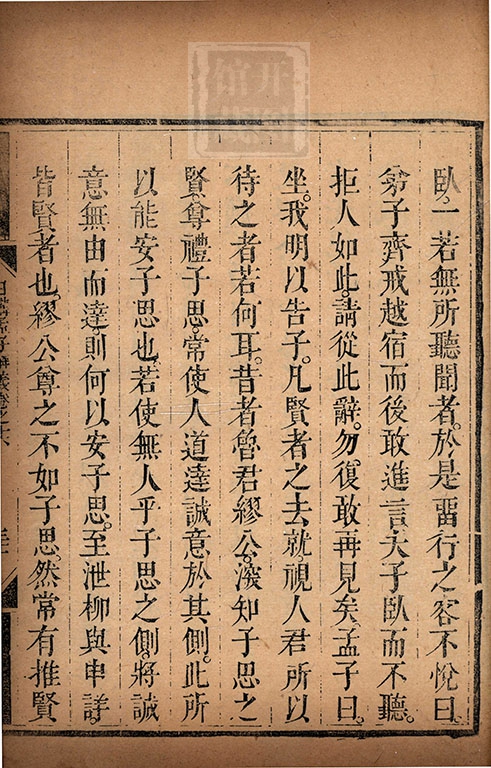 臥。一若無所聽聞者。於是畱行之客不悅曰。
弟子齊戒越宿而後敢進言。夫子臥而不聽。
拒人如此。請從此辭。勿復敢再見矣。孟子曰。
坐。我明以告子。凡賢者之去就視人君所以
待之者若何耳。昔者魯君繆公。深知子思之
賢。尊禮子思。常使人道達誠意於其側。此所
以能安子思也。若使無人乎子思之側。將誠
意無由而達。則何以安子思。至泄柳與申詳。
皆賢者也。繆公尊之不如子思。然常有推賢